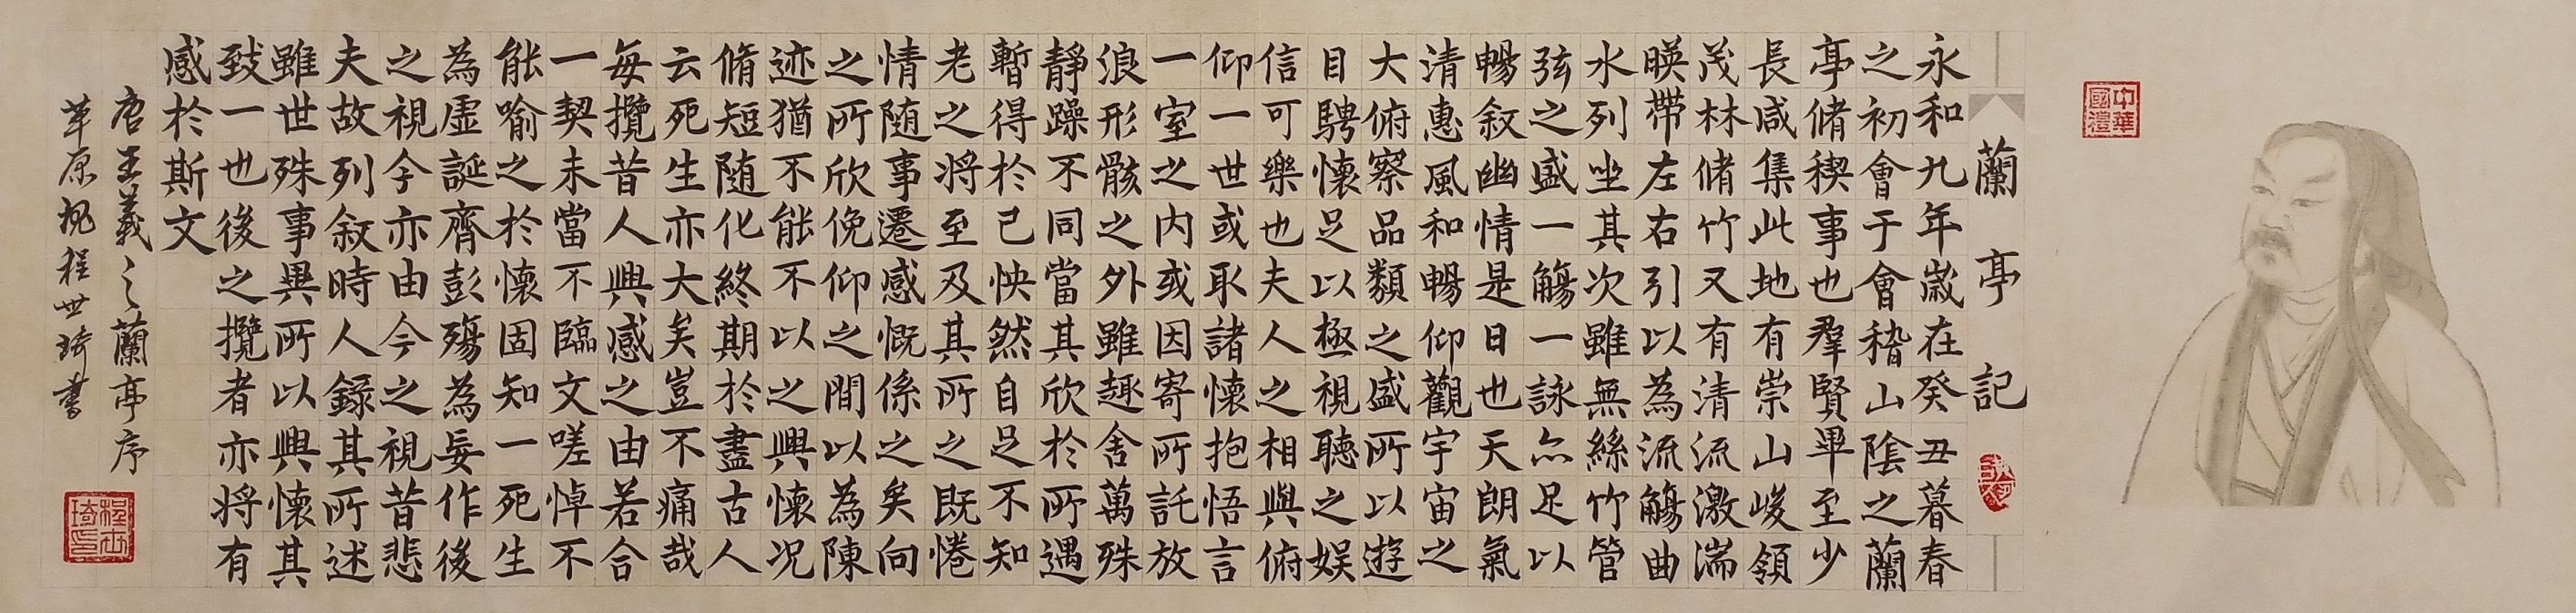 中華國禮
蘭亭記
永和九年歲在癸丑暮春
之初會于會稽山陰之蘭
亭脩稧事也羣賢畢至少
長咸集此地有崇山峻領
茂林脩竹又有清流激湍
暎帶左右引以為流觴曲
水列坐其次雖無絲竹管
弦之盛一觴一詠亦足以
暢敘幽情是日也天朗氣
清惠風和暢仰觀宇宙之
大俯察品類之盛所以遊
目騁懷足以極視聽之娛
信可樂也夫人之相與俯
仰一世或取諸懷抱悟言
一室之内或因寄所託放
浪形骸之外雖趣舍萬殊
靜躁不同當其欣於所遇
暫得於己怏然自足不知
老之將至及其所之既惓
情随事遷感慨係之矣向
之所欣俛仰之間以為陳
迹猶不能不以之興懷况
脩短随化終期於盡古人
云死生亦大矣豈不痛哉
每攬昔人興感之由若合
一契未當不臨文嗟悼不
能喻之於懷固知一死生
為虛誕齊彭殤為妄作後
之視今亦由今之視昔悲
夫故列敘時人錄其所述
雖世殊事異所以興懷其
致一也後之攬者亦將有
感於斯文
唐王羲之蘭亭序
原程世琦書
程世琦印